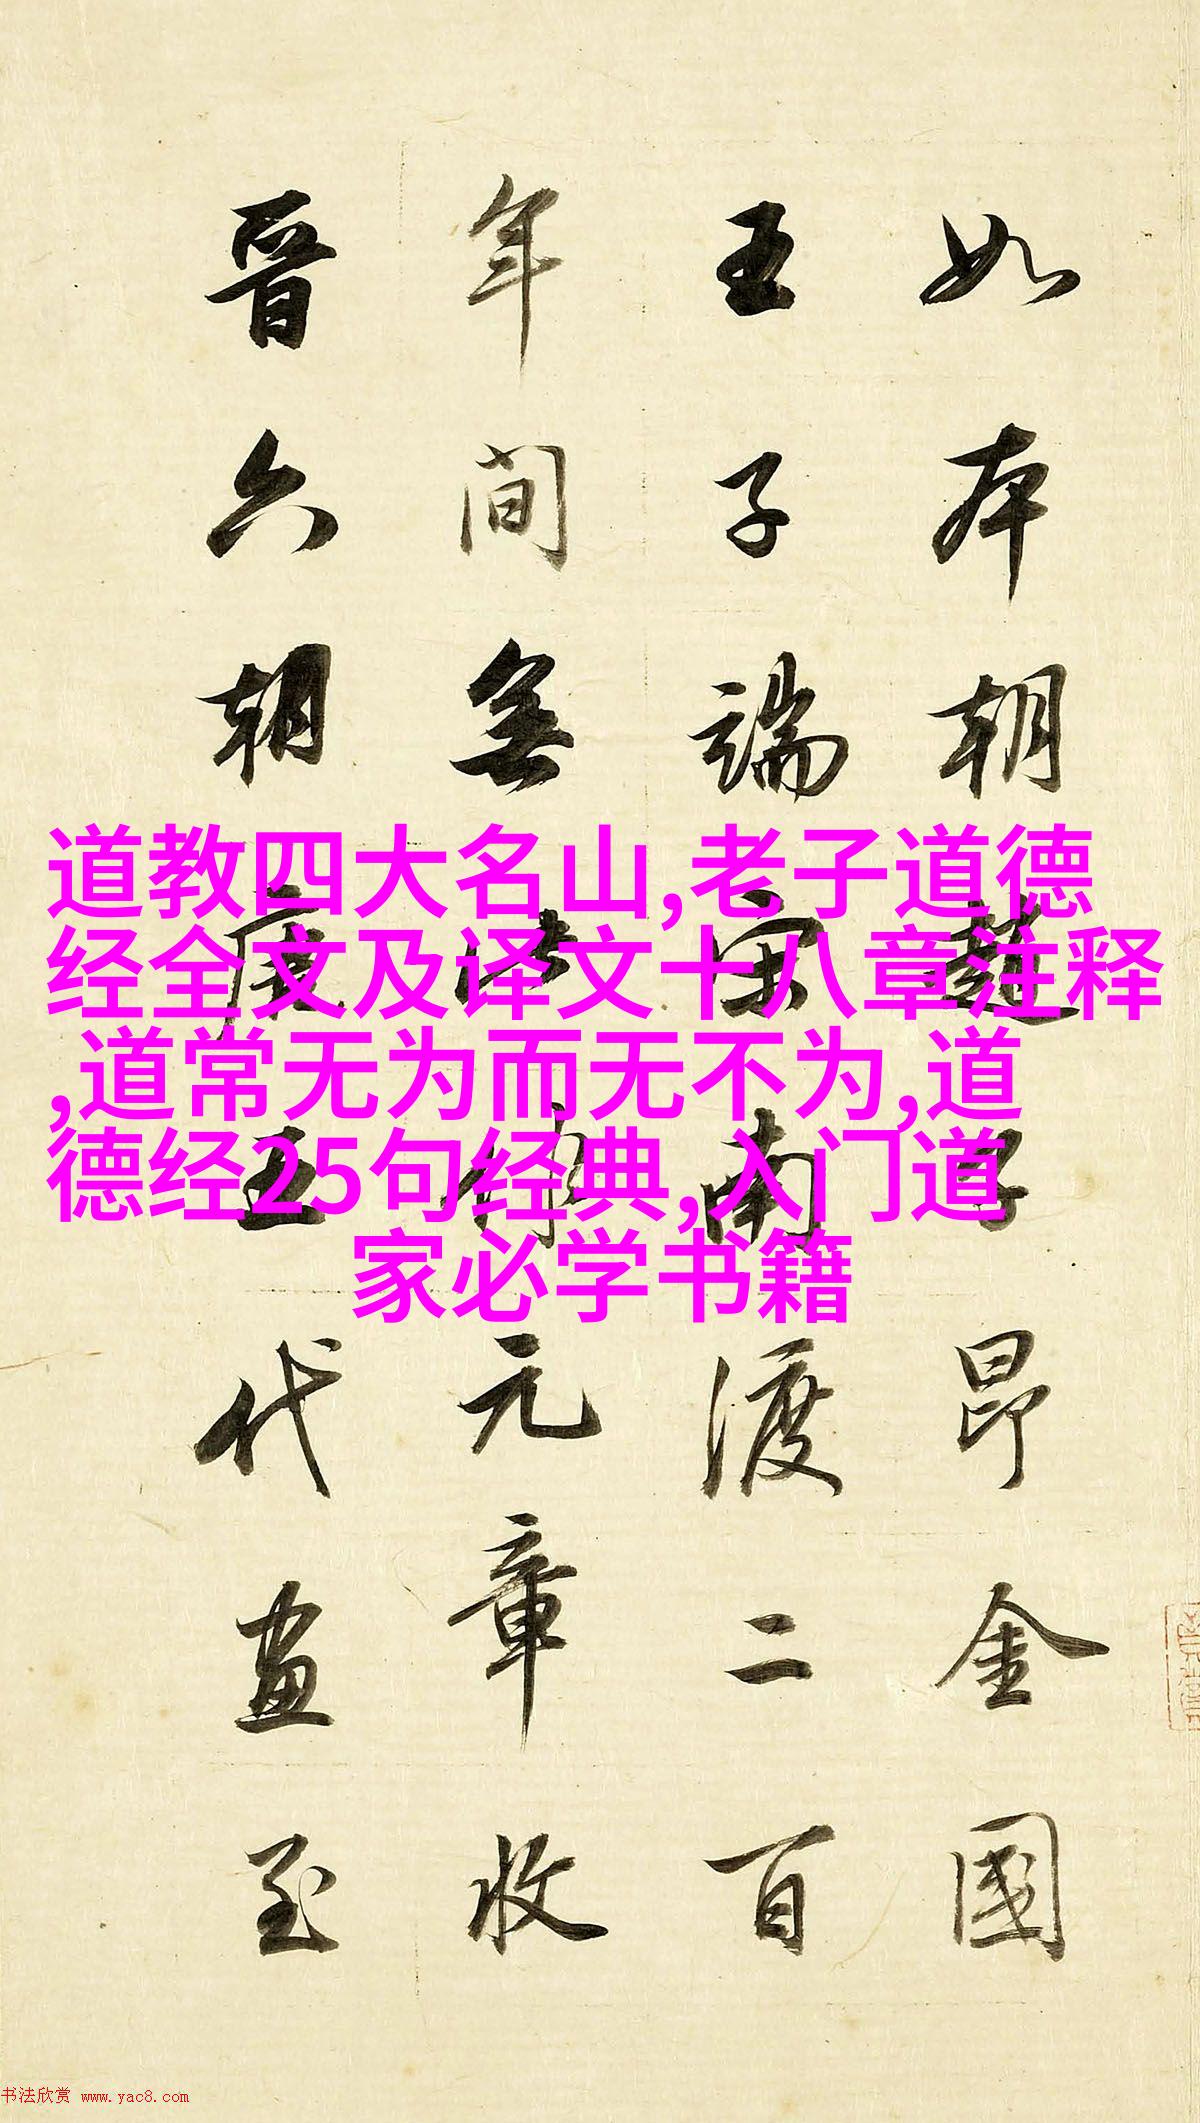 如本朝趙子昂金國
王子端宋南渡二百
年間無此作元章收
晉六朝唐五代畫至
道教四大名山,老子道德
经全文及译文十八章注释
,道常无为而无不为,道
德经25句经典,入门道
家必学书籍
书法欣赏 www.yac8.com